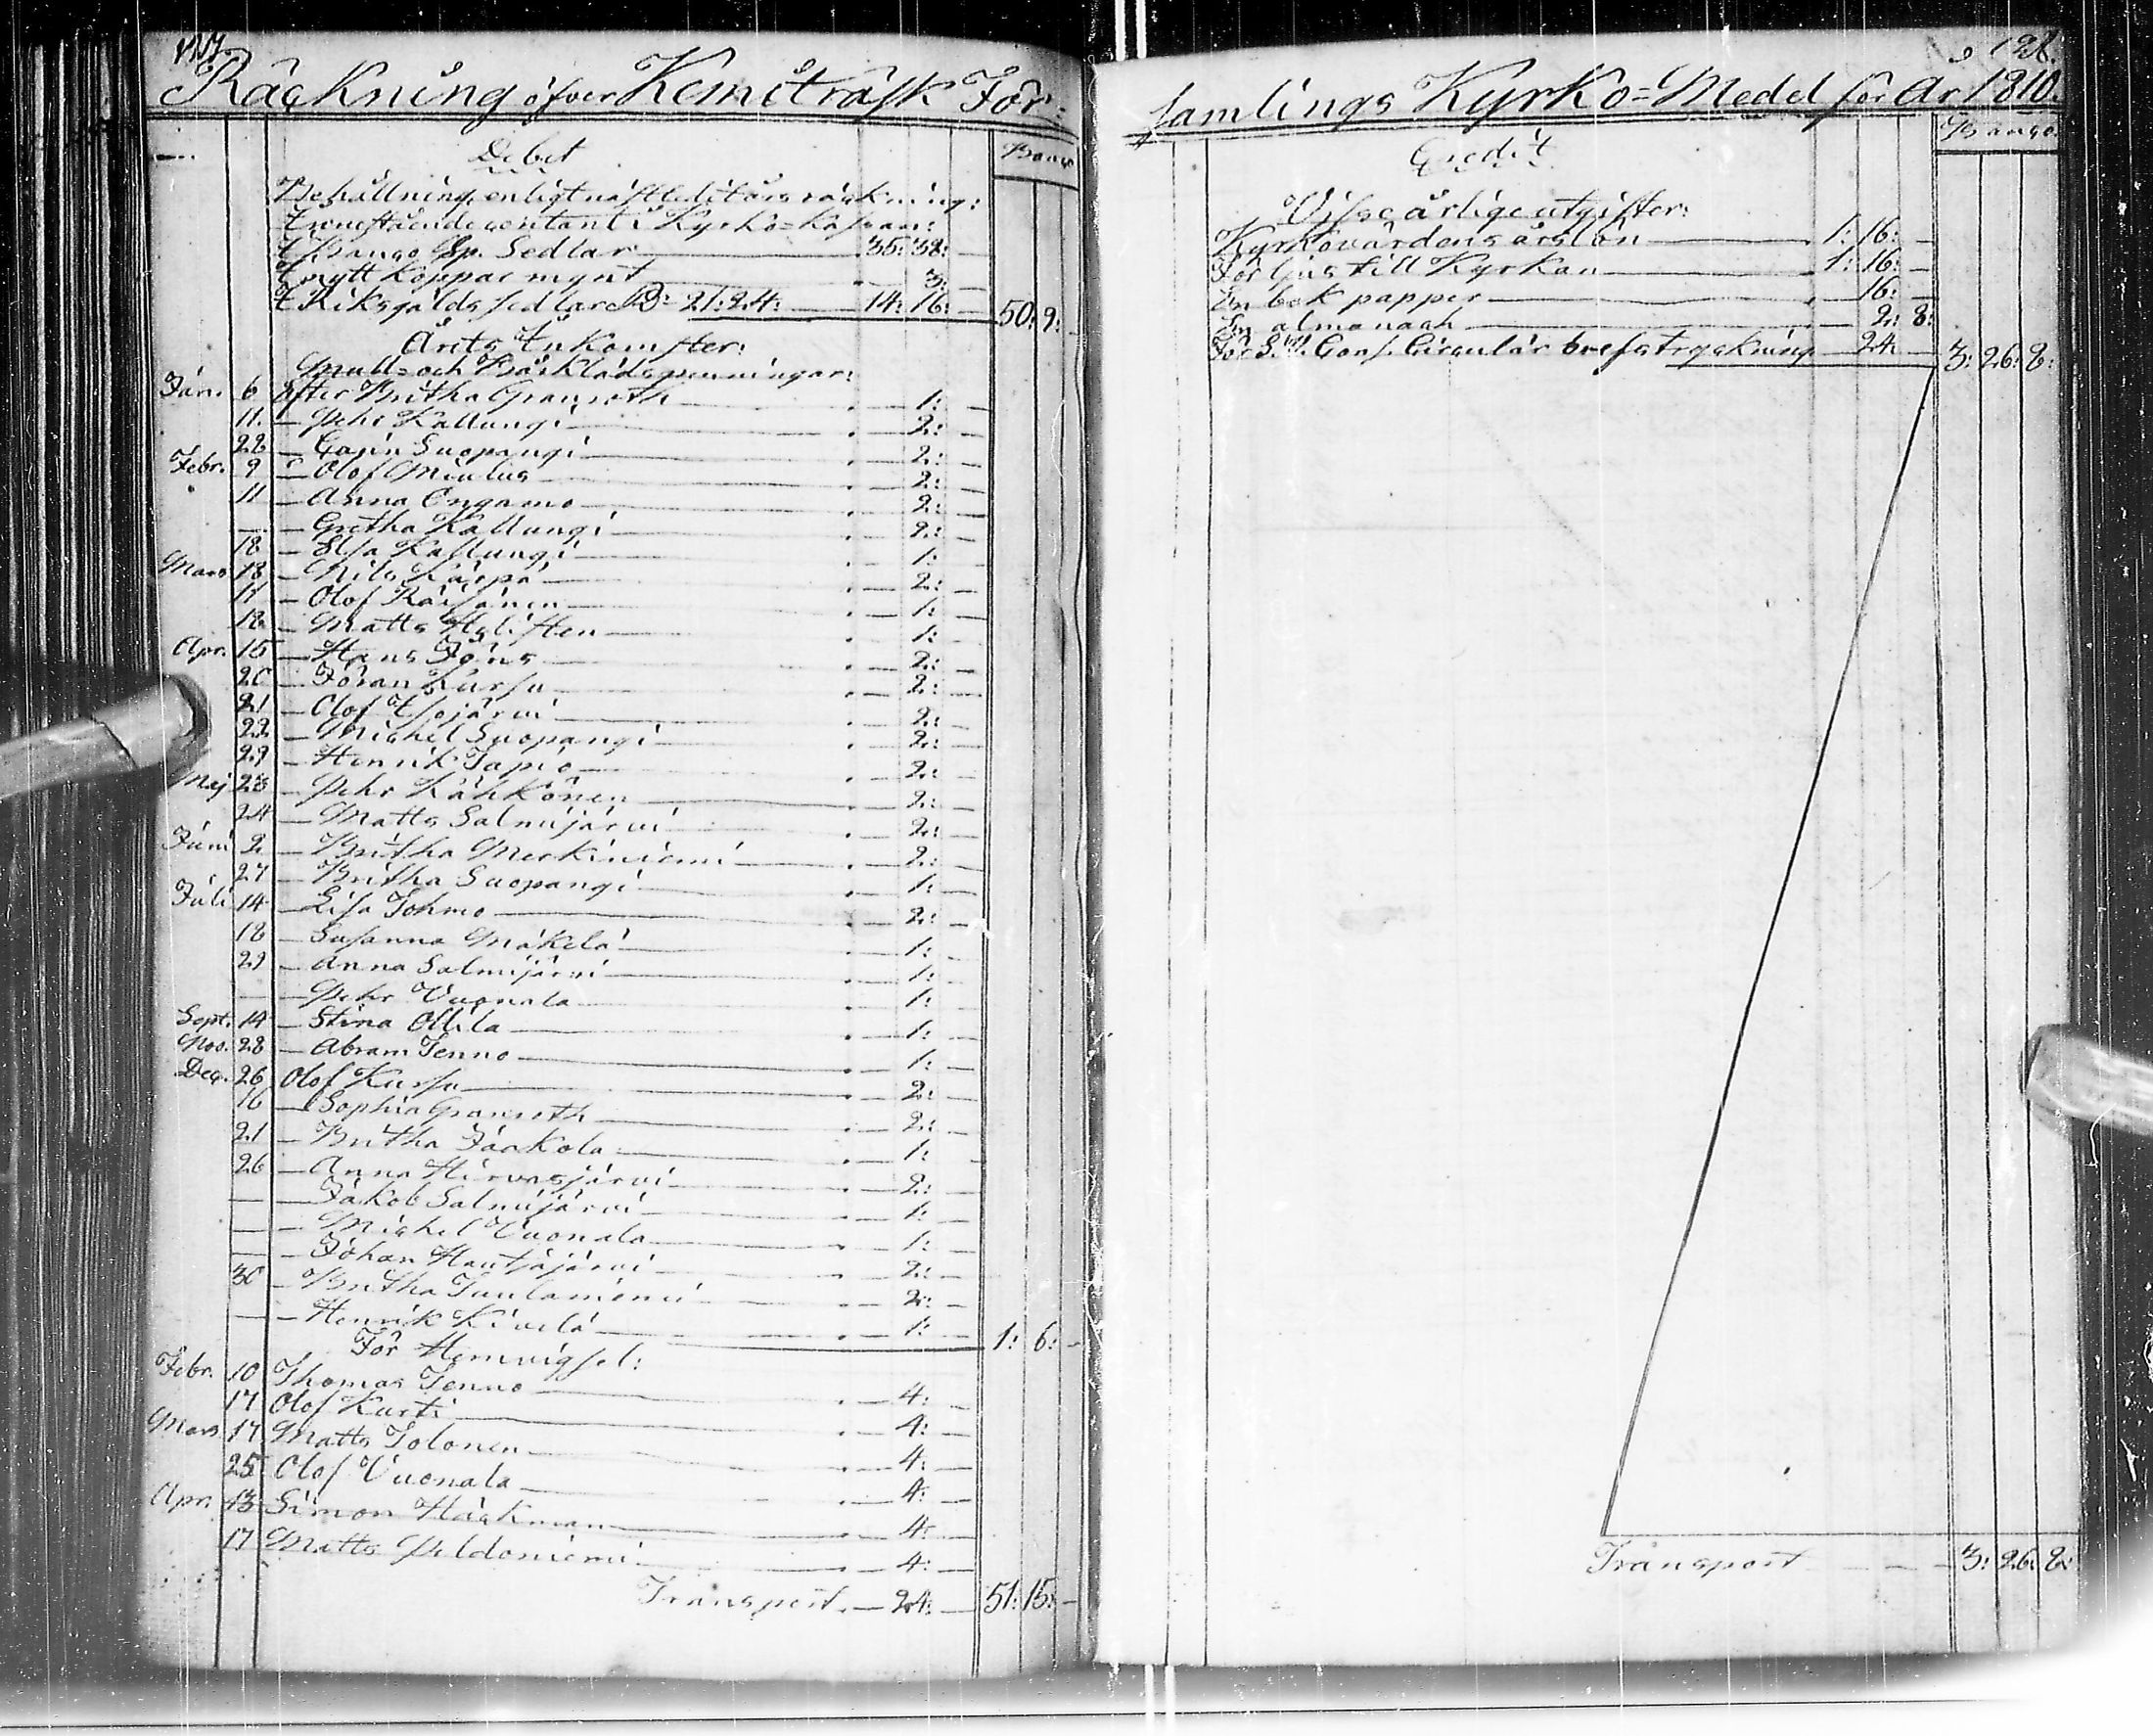 Räckning öfver Kemiträsk För=
Debet
Banco
Behållning enligt nästledit års räkning:
Innestående contant i Kyrko=Kassan:
I Banco Sp. Sedlar 35: 38: —
I nytt Koppar mynt 3: —
I Riksgälds sedlar Rd 21: 24: 14: 16: — 50: 9: —
Årets Inkomster:
Mull= och Bårklädspenningar:
Jan. 6 Efter Britha Granroth 1: —
11. — Pehr Kallungi 2: —
22 — Carin Suopangi 2: —
Febr. 9 — Olof Miulus 2: —
11 — Anna Ongamo 2: —
— — Gretha Kallungi 2: —
18 — Elsa Kallungi 1: —
Mars 18 — Nils Kärpä 2: —
11 — Olof Räisänen 1: —
18 — Matts 1: —
Apr. 15 — Hans Jöns 2: —
20 — Jöran Kursu 2: —
21 — Olof Isojärvi 2: —
22 — Michel Suopangi 2: —
29 — Henrik Tapio 2: —
Maj 23 — Pehr Kähkönen 2: —
24 — Matts Salmijärvi 2: —
Juni 2 — Britha Merkiniemi 2: —
27 — Britha Suopangi 1: —
Juli 14 — Lisa Tohmo 2: —
18 — Susanna Mäkelä 1: —
29 — Anna Salmijärvi 1: —
— — Pehr Vuonala 1: —
Sept. 14 — Stina Ollila 1: —
Nov. 28 — Abram Tenno 1: —
Dec. 26 Olof Kursu 2: —
16 — Sophia Granroth 2: —
21 — Britha Jaakola 1: —
26 — Anna Hirvasjärvi 2: —
— — Jakob Salmijärvi 1: —
— — Michel Vuonala 1: —
— — Johan Hautajärvi 2: —
30 — Britha Tuulaniemi 2: —
— — Henrik Kivelä 1: — 1: 6: —
För Hemvigsel:
Febr. 10 Thomas Tenno 4: —
17 Olof Kurti 4: —
Mars 17 Matts Tolonen 4: —
25 Olof Vuonala 4: —
Apr. 13 Simon Häckman 4: —
17 Matts Peldoniemi 4: —
Transport. — 24: — 51: 15: —
128.
samlings Kyrko=Medel för År 1810.
Credit
Banco
Visse årlige utgifter:
Kyrkovärdens årslön 1: 16: —
För ljus till Kyrkan 1: 16: —
En bok papper 16: —
En almanach 2: 8:
För Cons. Circulär brefs tryckning 24 — 3: 26: 8:
Transport — — 3: 26: 8: